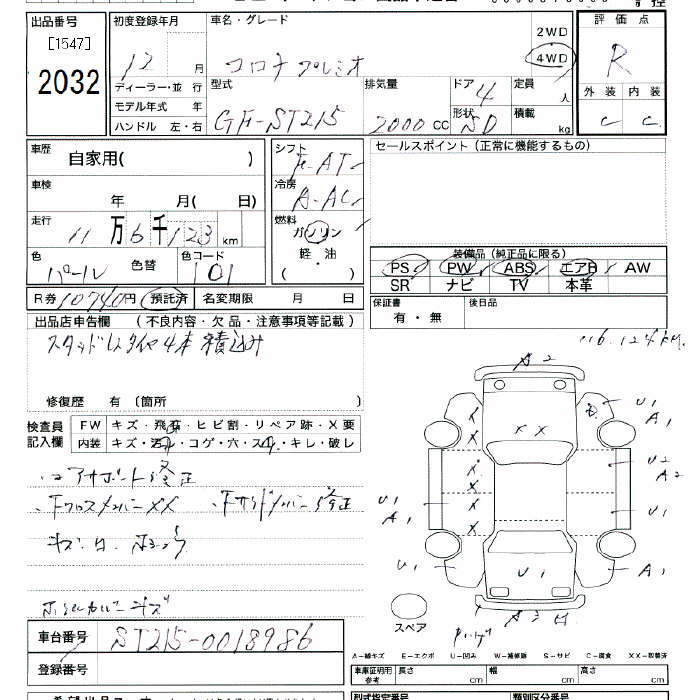 出品番号
[1547]
2032
初度登録年月
12 月
ディーラー・並 行
モデル年式 年
ハンドル 左・右
車名・グレード
コロナ プレミオ
2WD
4WD
型式
GF-ST215
排気量
2000 CC
ドア
4
形状
SD
定員
人
積載
kg
評価点
R
外装 内装
C C
車歴
自家用( )
車検
年 月( 日)
走行
11万6千123 km
色
パール
色替
色コード
101
シフト
F-AT
冷房
A-AC
燃料
ガソリン
軽・油
( )
セールスポイント (正常に機能するもの)
装備品 (純正品に限る)
PS PW ABS エアB AW
SR ナビ TV 本革
R券 10740円 預託済 名変期限 月 日
保証書
有・無
後日品
出品店申告欄 (不良内容・欠品・注意事項等記載)
スタッドレスタイヤ4本積込み
修復歴 有 (箇所 )
116,124km
検査員
記入欄
FW キズ・飛石・ヒビ割・リペア跡・X要
内装 キズ・汚れ・コゲ・穴・スレ・キレ・破レ
・コアサポート修正
・FクロスメンバーXX ・Fサイドメンバー修正
キズ・凹
キズ
A2
U1
A1
XX
U2
A2
U1
U1
A1
U1
U1
A1
スペア
車台番号
ST215-0018986
登録番号
A−線キズ E−エクボ U−凹み W−補修跡 S−サビ C−腐食 XX−取替済
車庫証明用
参考
長さ cm
幅 cm
高さ cm
型式指定番号
類別区分番号